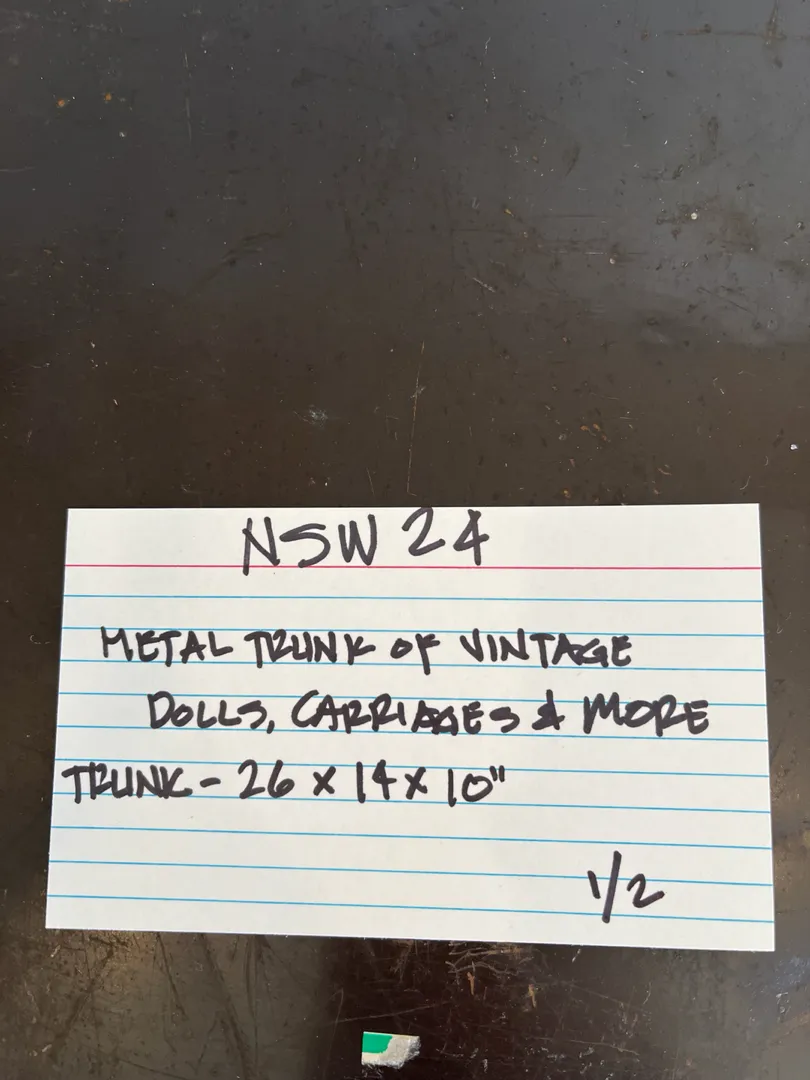 NSW 24
METAL TRUNK OF VINTAGE
DOLLS, CARRIAGES & MORE
TRUNK - 26 x 14 x 10"
1/2